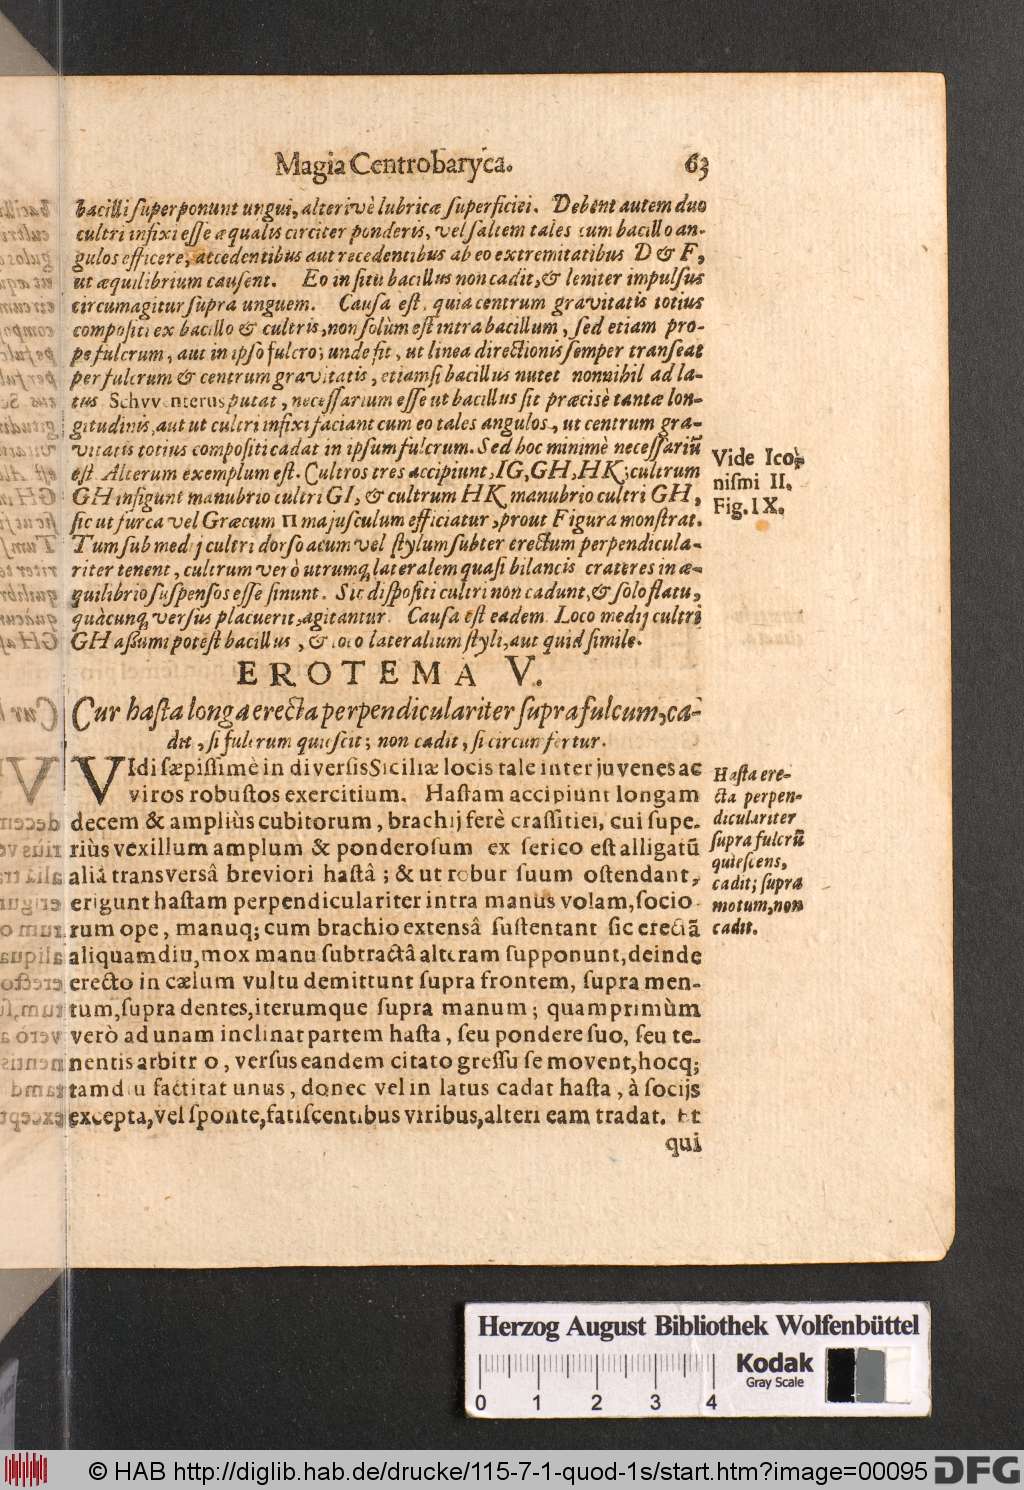 Magia Centrobaryca. 63
bacilli superponunt ungui, alterivè lubricæ superficiei. Debent autem duo
cultri infixi esse æqualis circiter ponderis, vel saltem tales cum bacillo an-
gulos efficere, accedentibus aut recedentibus ab eo extremitatibus D & F,
ut æquilibrium causent. Eo in situ bacillus non cadit, & leniter impulsus
circumagitur supra unguem. Causa est, quia centrum gravitatis totius
compositi ex bacillo & cultris, non solùm est intra bacillum, sed etiam pro-
pe fulcrum, aut in ipso fulcro; unde fit, ut linea directionis semper transeat
per fulcrum & centrum gravitatis, etiamsi bacillus nutet nonnihil ad la-
tus Schvventerus putat, necessarium esse ut bacillus sit præcisè tantæ lon-
gitudinis, aut ut cultri infixi faciant cum eo tales angulos, ut centrum gra-
vitatis totius compositi cadat in ipsum fulcrum. Sed hoc minimè necessariũ
est. Alterum exemplum est. Cultros tres accipiunt, IG, GH, HK; cultrum
GH insigunt manubrio cultri GI, & cultrum HK manubrio cultri GH,
sic ut furca vel Græcum Π majusculum efficiatur, prout Figura monstrat.
Tum sub medij cultri dorso acum vel stylum subter erectum perpendicula-
riter tenent, cultrum verò utrumq lateralem quasi bilancis crateres in æ-
quilibrio suspensos esse sinunt. Sic dispositi cultri non cadunt, & solo flatu,
quàcunq versus placuerit, agitantur. Causa est eadem. Loco medij cultri
GH assumi potest bacillus, & loco lateralium styli, aut quid simile.
Vide Ico-
nismi II.
Fig. IX.
EROTEMA V.
Cur hasta longa erecta perpendiculariter supra fulcum, ca-
dit, si fulcrum quiescit; non cadit, si circumfertur.
VIdi sæpissimè in diversis Siciliæ locis tale inter juvenes ac
viros robustos exercitium. Hastam accipiunt longam
decem & ampliùs cubitorum, brachij ferè crassitiei, cui supe-
riùs vexillum amplum & ponderosum ex serico est alligatũ
aliâ transversâ breviori hastâ; & ut robur suum ostendant,
erigunt hastam perpendiculariter intra manus volam, socio-
rum ope, manuq; cum brachio extensâ sustentant sic erectã
aliquamdiu, mox manu subtractâ alteram supponunt, deinde
erecto in cælum vultu demittunt supra frontem, supra men-
tum, supra dentes, iterumque supra manum; quamprimùm
verò ad unam inclinat partem hasta, seu pondere suo, seu te-
nentis arbitrio, versus eandem citato gressu se movent, hocq;
tamdiu factitat unus, donec vel in latus cadat hasta, à socijs
excepta, vel sponte, fatiscentibus viribus, alteri eam tradat. Et
qui
Hasta ere-
cta perpen-
diculariter
supra fulcrũ
quiescens,
cadit; supra
motum, non
cadit.
Herzog August Bibliothek Wolfenbüttel
0 1 2 3 4
Kodak
Gray Scale
© HAB http://diglib.hab.de/drucke/115-7-1-quod-1s/start.htm?image=00095 DFG